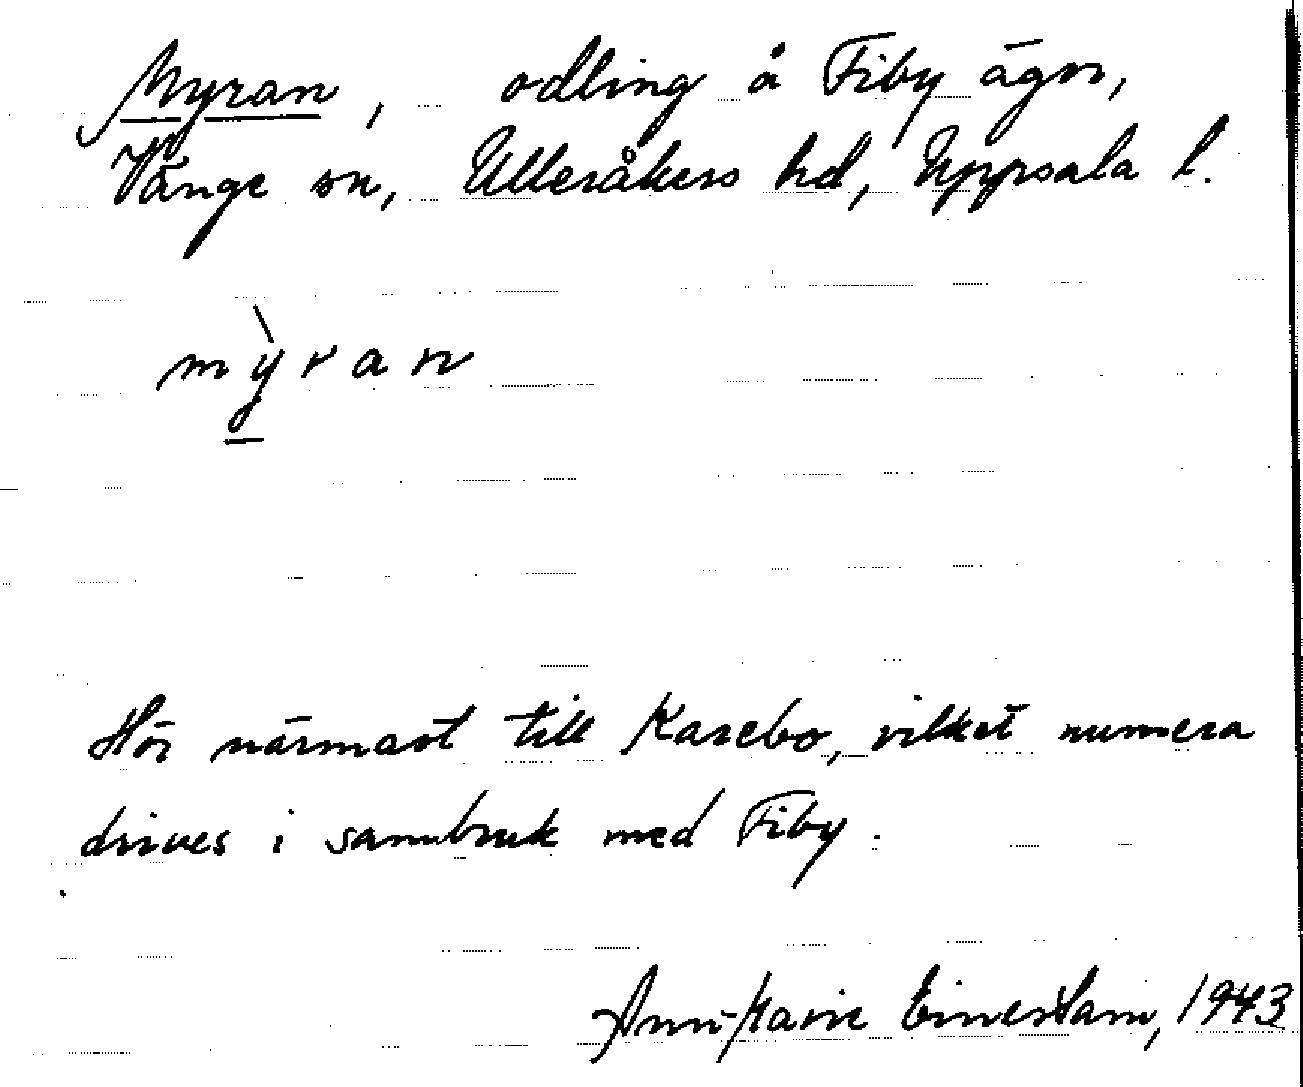 Myran, odling å Fiby ägor,
Vänge sn, Ulleråkers hd, Uppsala l.
mỳran
Hör närmast till Karebo, vilket numera
drives i sambruk med Fiby.
Ann-Marie 1943